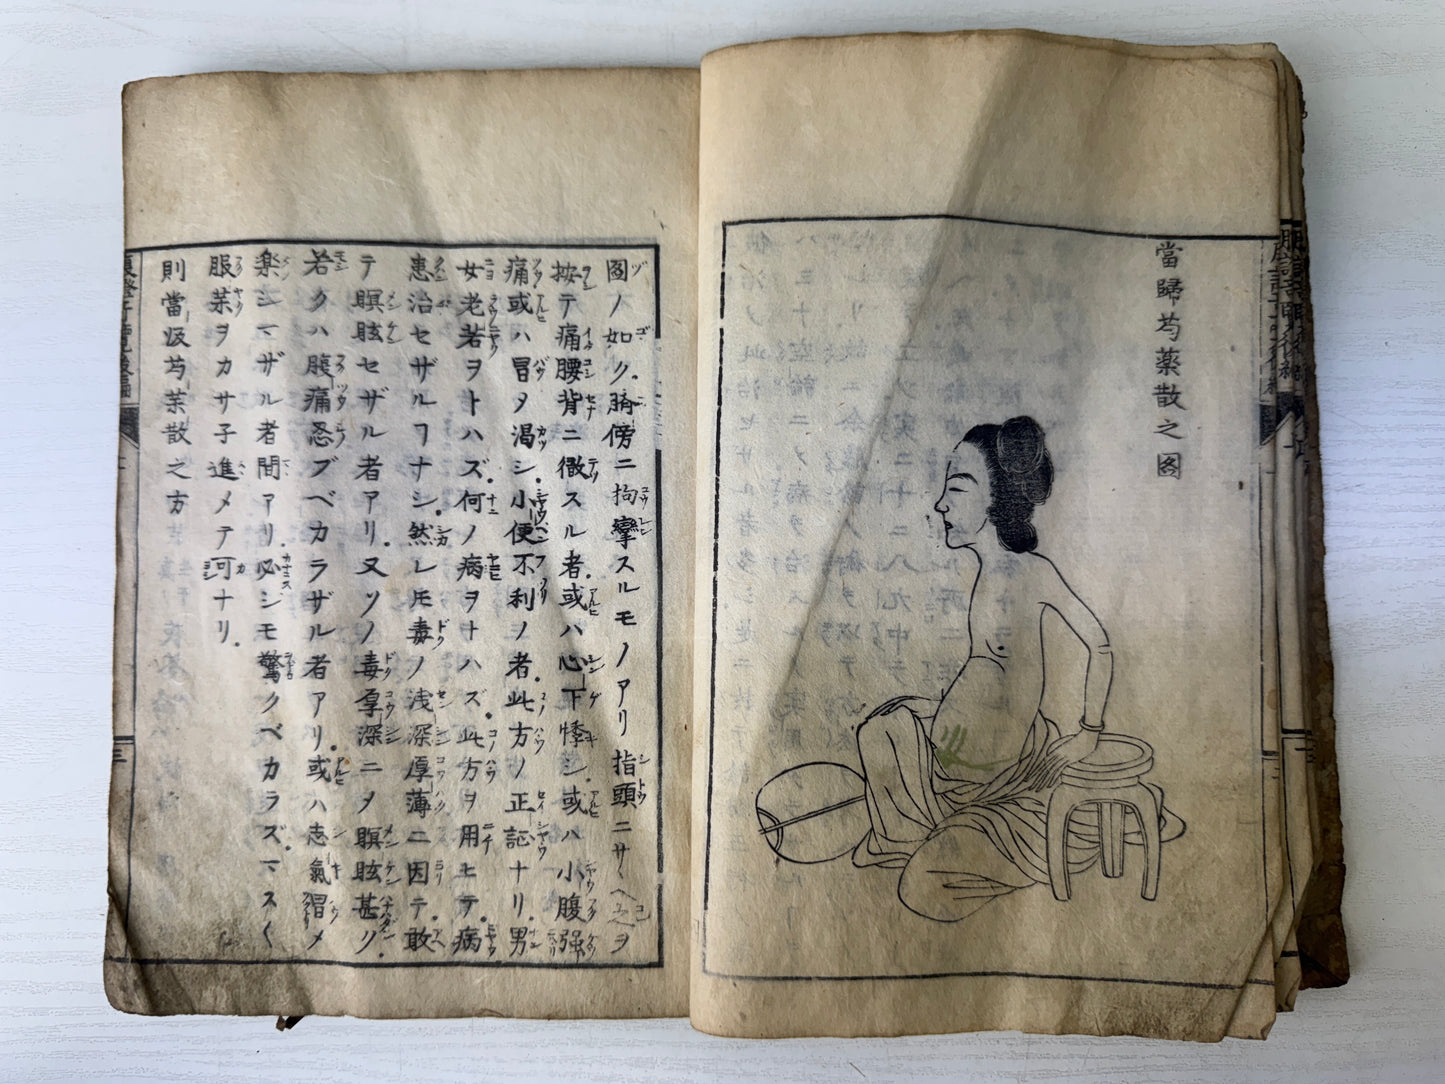 當歸芍薬散之図
図ノ如ク臍傍ニ拘攣スルモノアリ指頭ニサヘ之ヲ
按テ痛腰背ニ徹スル者或ハ心下悸シ或ハ小腹強
痛或ハ冒タ渇シ小便不利ノ者此方ノ正証ナリ男
女老若ヲトハズ何ノ病ヲナハズ此方ヲ用ヒテ病
患治セザルヿナシ然レモ毒ノ浅深厚薄ニ因テ敢
テ瞑眩セザル者アリ又ソノ毒厚深ニヲ瞑眩甚ク
若クハ腹痛忍ブベカラザル者アリ或ハ志氣冒メ
楽シマザル者間アリ必シモ驚クベカラズマスく
服薬ヲカサ子進メテ可ナリ
則當皈芍薬散之方
腹證奇覽後編
三